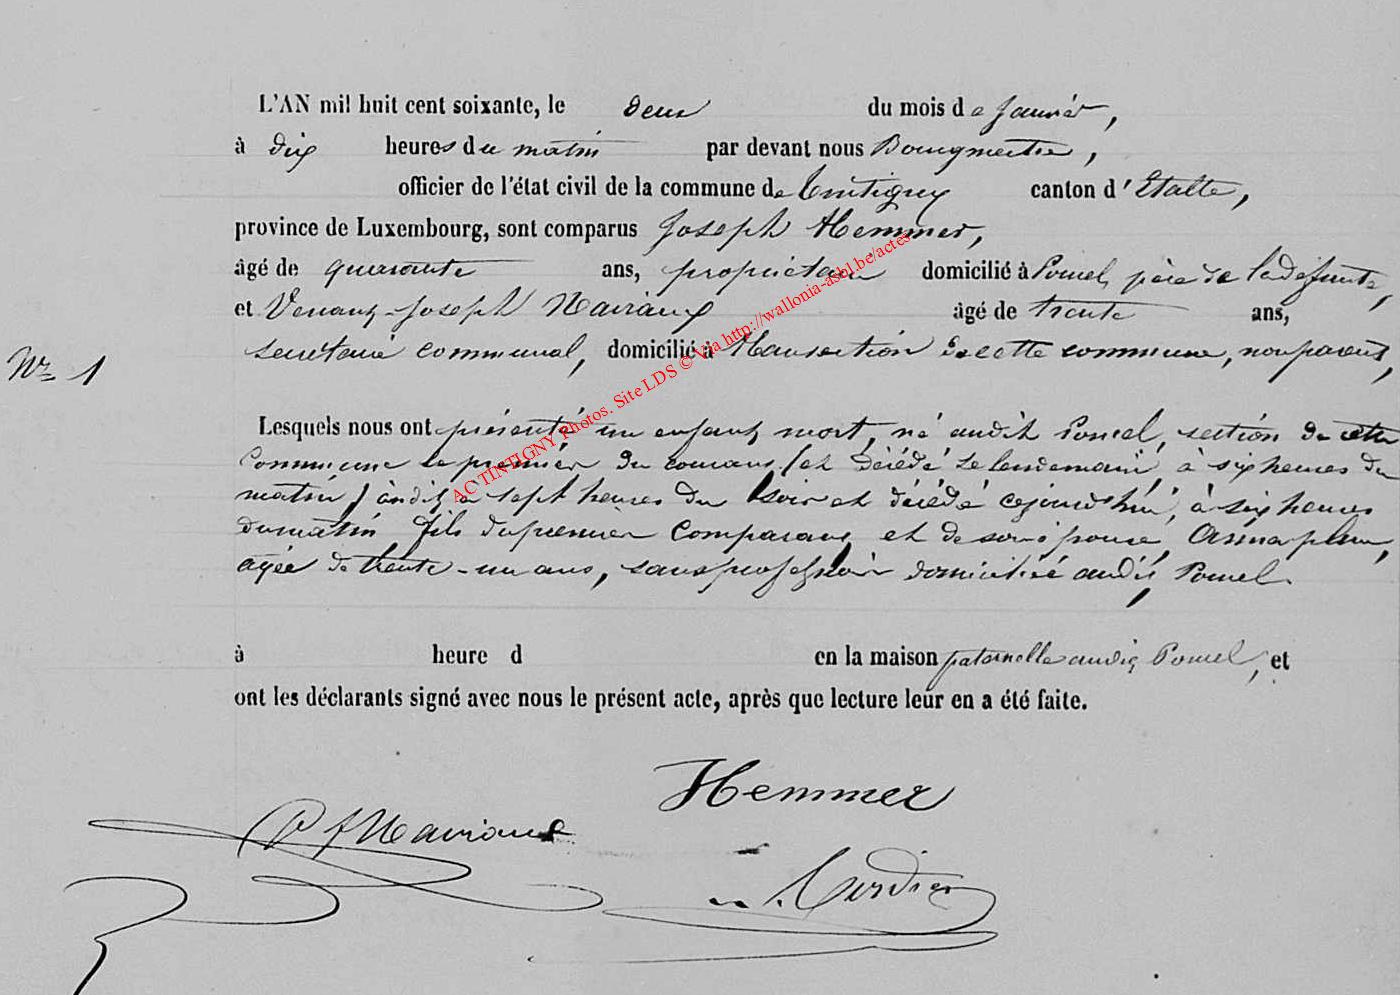 L'AN mil huit cent soixante, le deux du mois de Janvier,
à dix heures du matin par devant nous Bourgmestre,
officier de l'état civil de la commune de Tintigny canton d'Etalle,
province de Luxembourg, sont comparus Joseph Hemmer,
âgé de quarante ans, propriétaire domicilié à Poncel, père de la défunte,
et Venant-Joseph Navaux âgé de trente ans,
secrétaire communal, domicilié à Han section de cette commune, non parent,
N° 1
Lesquels nous ont présenté un enfant mort, né audit Poncel, section de cette
commune le premier du courant (et décédé le lendemain, à six heures du
matin) à sept heures du soir et décédé cejourd'hui, à six heures
du matin, fils du premier comparant et de son épouse, Anna
agée de trente-un ans, sans profession domiciliée audit Poncel.
à heure d en la maison paternelle audit Poncel, et
ont les déclarants signé avec nous le présent acte, après que lecture leur en a été faite.
Hemmer
AC TINTIGNY Photos. Site LDS © Via http://wallonia-asbl.be/actes